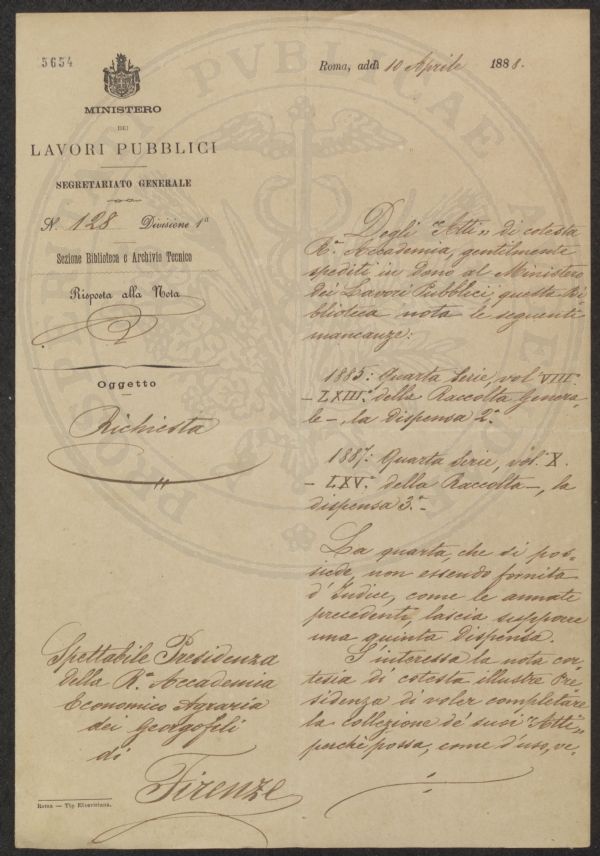 5654
MINISTERO
DEI
LAVORI PUBBLICI
SEGRETARIATO GENERALE
N. 128 Divisione 1ª
Sezione Biblioteca e Archivio Tecnico
Risposta alla Nota
Oggetto
Richiesta
Spettabile Presidenza
della Rª Accademia
Economico Agraria
dei Georgofili
di
Firenze
Roma — Tip. Elzeviriana.
Roma, addì 10 Aprile 1888.
Degli "Atti" di cotesta
Rª Accademia, gentilmente
spediti in dono al Ministero
dei Lavori Pubblici, questa Bi-
blioteca nota le seguenti
mancanze:
1885: Quarta Serie, vol. VIII.
- LXIII.° della Raccolta Genera-
le -, la dispensa 2ª
1887: Quarta Serie, vol. X.
- LXV.° della Raccolta -, la
dispensa 3ª -
La quarta, che si pos-
siede, non essendo fornita
d'Indice, come le annate
precedenti, lascia supporre
una quinta dispensa.
S'interessa la nota cor-
tesia di cotesta illustre Pre-
sidenza di voler completare
la collezione de' suoi "Atti"
perchè possa, come d'uso, ve-